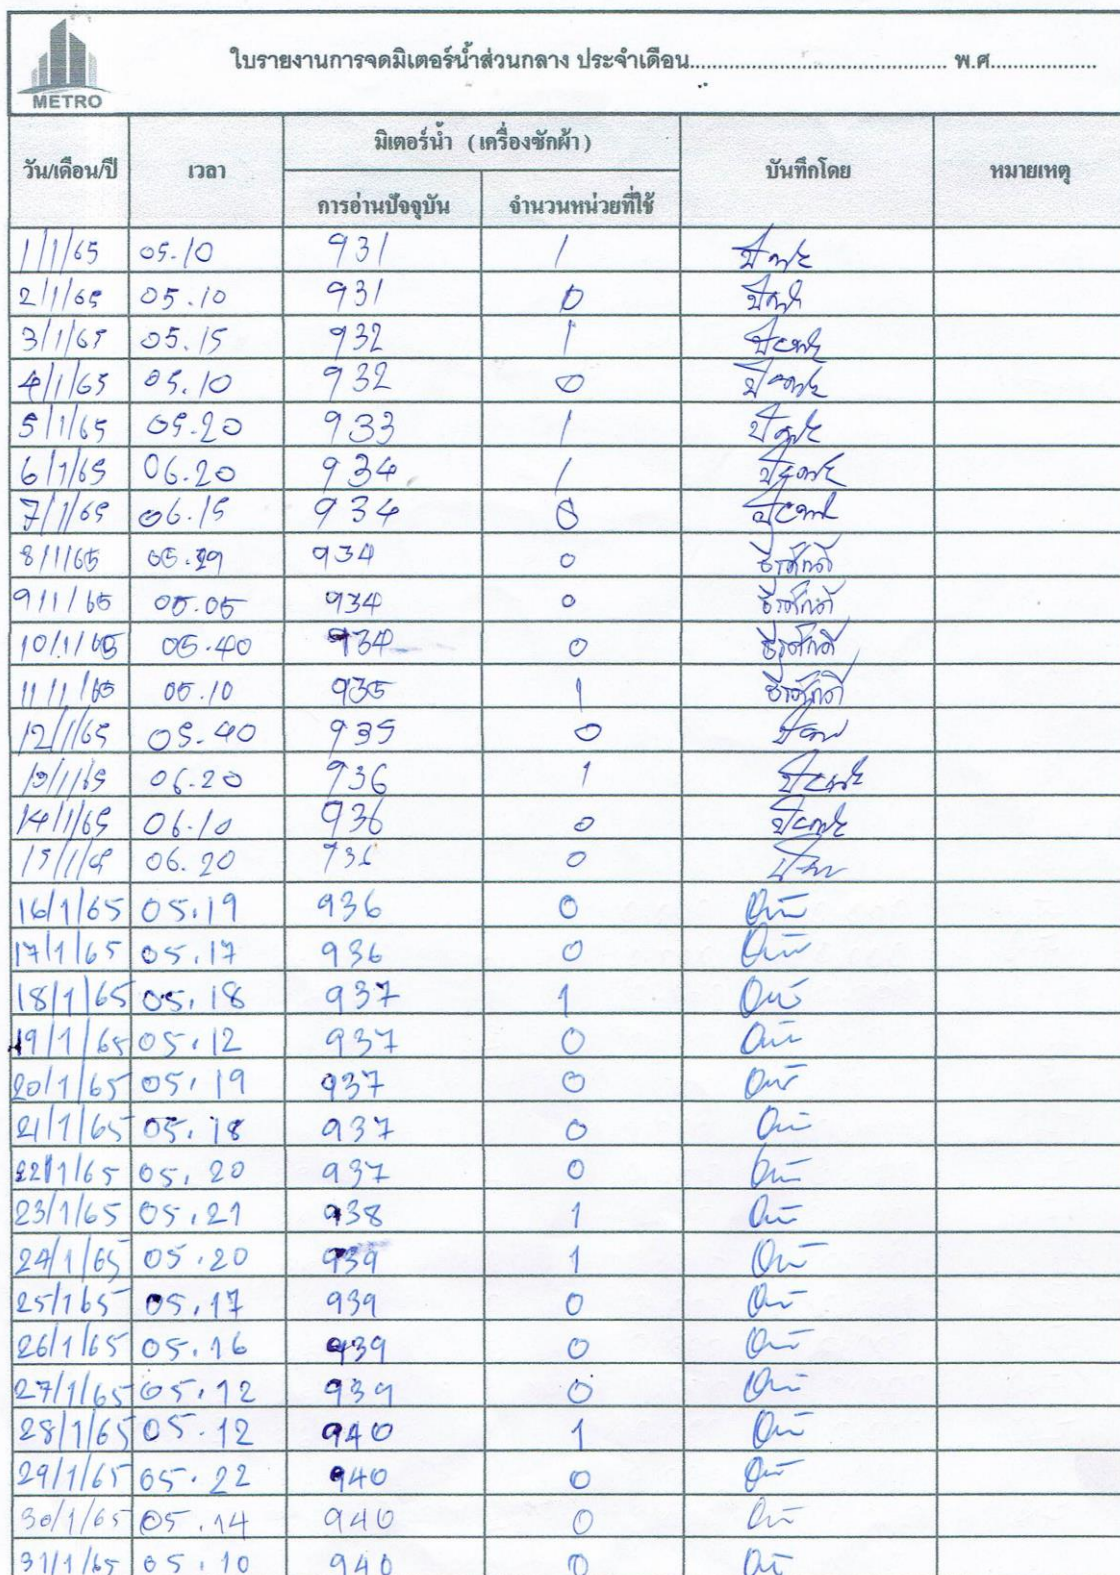 METRO
ใบรายงานการจดมิเตอร์น้ำส่วนกลาง ประจำเดือน.............................................. พ.ศ...................
วัน/เดือน/ปี เวลา มิเตอร์น้ำ (เครื่องซักผ้า) บันทึกโดย หมายเหตุ
การอ่านปัจจุบัน จำนวนหน่วยที่ใช้
1/1/65 05.10 931 1
2/1/65 05.10 931 0
3/1/65 05.15 932 1
4/1/65 05.10 932 0
5/1/65 05.20 933 1
6/1/65 06.20 934 1
7/1/65 06.15 934 0
8/1/65 05.29 934 0 ธีรศักดิ์
9/1/65 05.05 934 0 ธีรศักดิ์
10/1/65 05.40 934 0 ธีรศักดิ์
11/1/65 05.10 935 1 ธีรศักดิ์
12/1/65 05.40 935 0
13/1/65 06.20 936 1
14/1/65 06.10 936 0
15/1/65 06.20 936 0
16/1/65 05.19 936 0
17/1/65 05.17 936 0
18/1/65 05.18 937 1
19/1/65 05.12 937 0
20/1/65 05.19 937 0
21/1/65 05.18 937 0
22/1/65 05.20 937 0
23/1/65 05.21 938 1
24/1/65 05.20 939 1
25/1/65 05.17 939 0
26/1/65 05.16 939 0
27/1/65 05.12 939 0
28/1/65 05.12 940 1
29/1/65 05.22 940 0
30/1/65 05.14 940 0
31/1/65 05.10 940 0